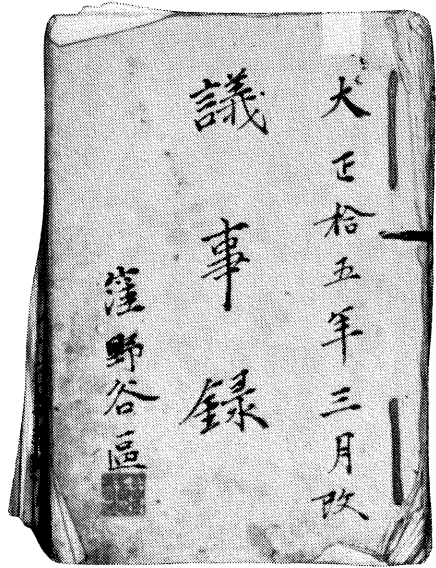 大正拾五年三月改
議事録
窪野谷區